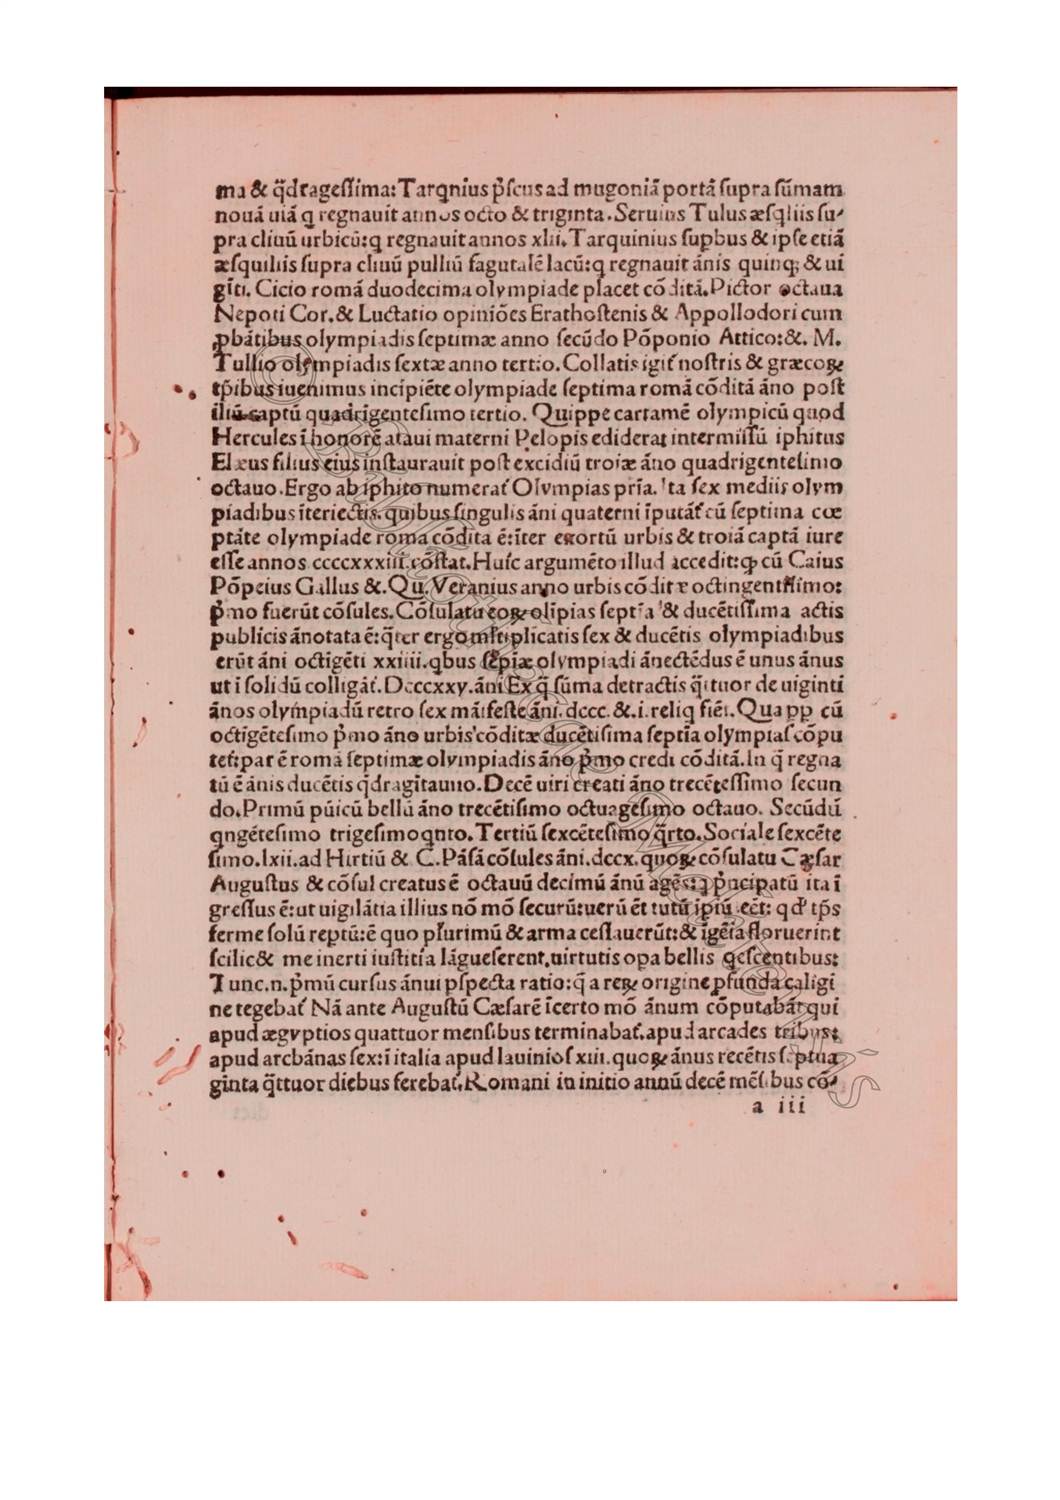 ma & q̃dragessima: Tarqnius p̃scus ad mugoniā portā supra sūmam
nouā uiā q regnauit annos octo & triginta. Seruius Tulus æsqliis su-
pra cliuū urbicū:q regnauit annos xlii. Tarquinius supbus & ipse etiā
æsquiliis supra cliuū pulliū fagutalē lacū:q regnauit ānis quinq; & ui
gīti. Cicio romā duodecima olympiade placet cō ditā. Pictor octaua
Nepoti Cor. & Luctatio opiniōes Erathostenis & Appollodori cum
pbātibus olympiadis septimæ anno secūdo Pōponio Attico:&. M.
Tullio olympiadis sextæ anno tertio. Collatis igit̃ nostris & græcoꝝ
tp̃ibus iuenimus incipiēte olympiade septima romā cōditā āno post
iliū captū quadrigentesimo tertio. Quippe cartamē olympicū quod
Hercules ī honorē ataui materni Pelopis ediderat intermissū iphitus
Elæus filius eius instaurauit post excidiū troiæ āno quadrigentesimo
octauo. Ergo ab iphito numerat̃ Olympias pria. Ita sex mediis olym
piadibus īteriectis. quibus singulis āni quaterni īputāt̃ cū septima cœ
ptāte olympiade roma cōdita ē:īter exortū urbis & troiā captā iure
esse annos ccccxxxiii. cōstat. Huic argumēto illud accedit:ꝙ cū Caius
Pōpeius Gallus &. Qu. Veranius anno urbis cōdite octingentissimo:
p̃mo fuerūt cōsules. Cōsulatu eoꝝ olīpias septīa & ducētissima actis
publicis ānotata ē:q̃ter ergo mltiplicatis sex & ducētis olympiadibus
erūt āni octigēti xxiiii. qbus sepīæ olympiadi ānectēdus ē unus ānus
ut ī solidū colligāt̃. Dcccxxy. āni Ex q̃ sūma detractis q̃ttuor de uiginti
ānos olympiadū retro sex māifeste āni. dccc. &. i. reliq fiēt. Qua pp cū
octīgētesimo p̃mo āno urbis cōditæ ducētisima septīa olympias cōpu
tet̃:par ē romā septimæ olympiadis āno p̃mo credi cōditā. In q̃ regna
tū ē ānis ducētis q̃dragītauno. Decē uiri creati āno trecētessimo secun
do. Primū pūicū bellū āno trecētisimo octuagesimo octauo. Secūdū
qngētesimo trigesimo qnto. Tertiū sexcētesimo q̃rto. Sociale sexcēte
simo. lxii. ad Hirtiū & C. Pāsā cōsules āni. dccx. quoꝝ cōsulatu Cæsar
Augustus & cōsul creatus ē octauū decimū ānū agēs:q p̃ncipatū ita ī
gressus ē:ut uigilātia illius nō mō securū:uerū ēt tutū ip̄iū eēt: qd' tp̃s
ferme solū reptū:ē quo plurimū & arma cessauerūt:& īgēia floruerint
scilic& me inerti iustitia lāgueserent, uirtutis opa bellis qescentibus:
Tunc. n. p̃mū cursus ānui pspecta ratio:q̃ a reꝝ origine pfunda caligi
ne tegebat̃ Nā ante Augustū Cæsarē īcerto mō ānum cōputabāt qui
apud ægyptios quattuor mensibus terminabat̃. apud arcades tribus:
apud arcbānas sex:ī italia apud lauinios xiii. quoꝝ ānus recētis septua
ginta q̃ttuor diebus ferebat̃. Romani in initio annū decē mēsibus cō-
a iii